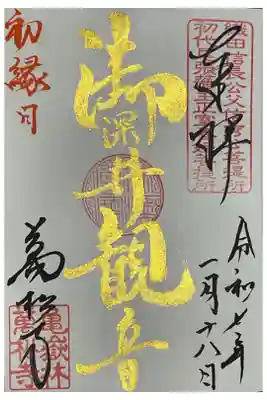 奉拝
織田信長公父信秀公菩提所
令和七年
一月十八日
御深井観音
初縁日
萬松寺
亀嶽林
萬松寺